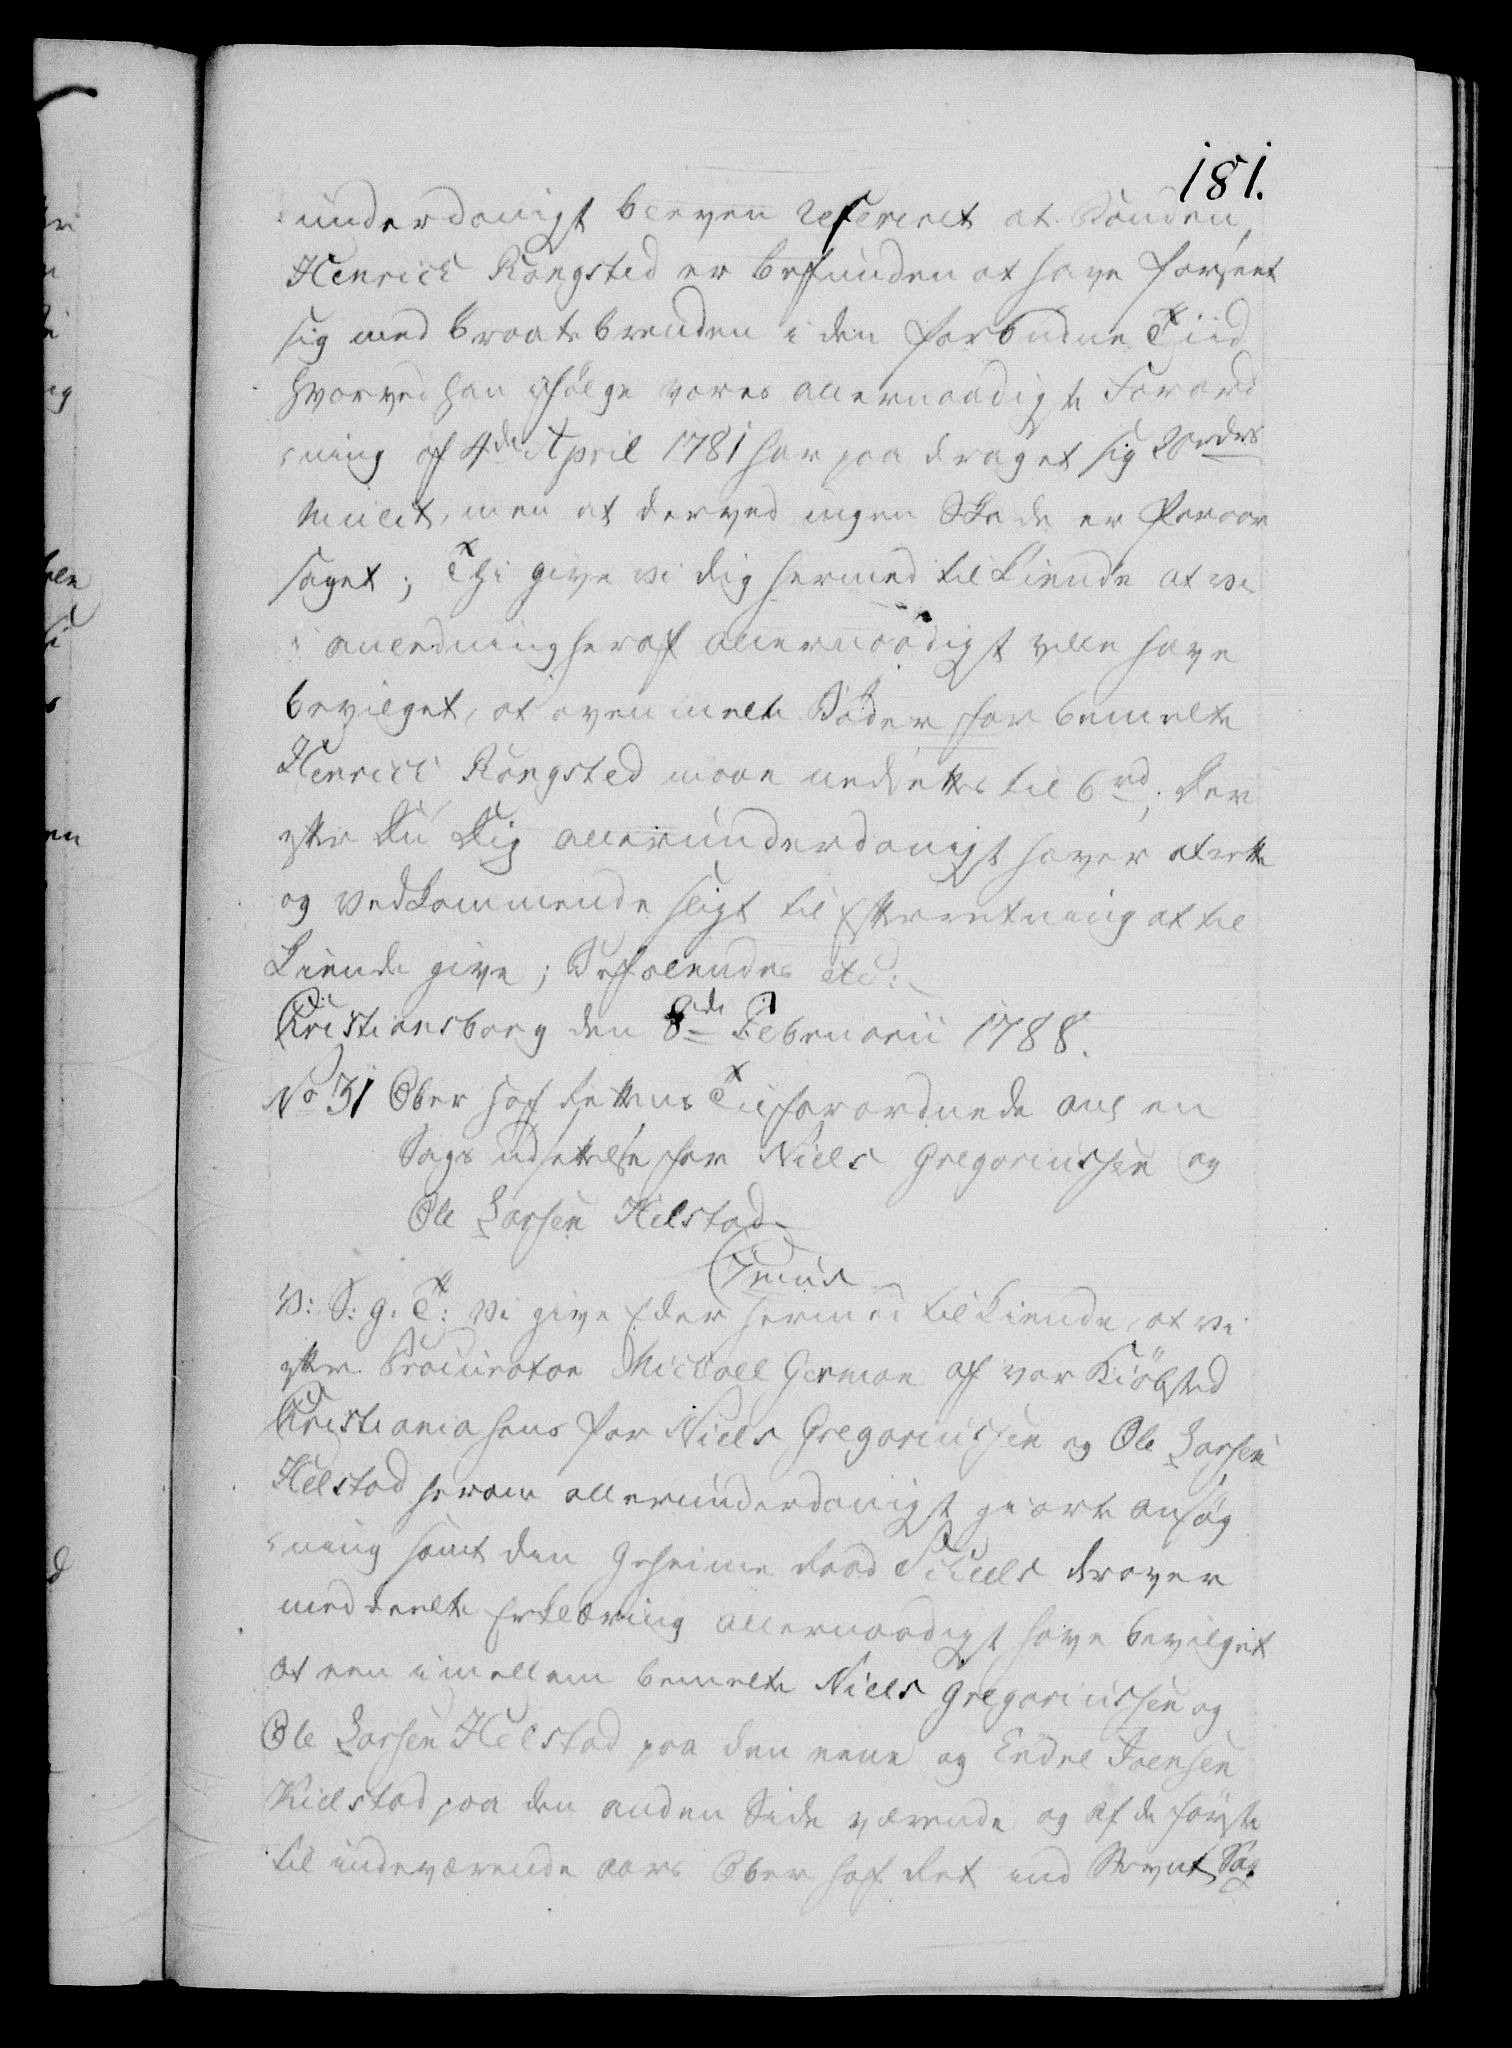 181.
underdanigst bleven refereret at Bonden,
Henrich Rongsted er befunden at have forseet
sig med Braatebrenden i den forbudne Tiid
hvorved han ifølge vores allernaadigste Forord
ning af 4de April 1781 har paa draget sig 20 rdrs
Mulct, men at derved ingen Skade er foraar
saget; Thi give vi dig hermed tilkiende at vi
i anledning heraf allernaadigst ville have
bevilget, at ovenmelte Bøder for bemelte
Henrich Rongsted maae nedsettes til 6 rd; Der
efter Du Dig allerunderdanigst haver at rette
og vedkommende sligt til Efterretning at til
kiende give; Befalendes etc:
Christiansborg den 8de Februarii 1788.
No 31 Ober Hof Rettens Tilforordnede ang en
Sags udsettelse for Niels Gregoriussen og
Ole Larsen Helstad
V: S: G. T: Vi give Eder hermed tilkiende, at vi
efter Procurator Michael German af vor Kiøbsted
Christiania hans for Niels Gregoriussen og Ole Larsen
Helstad herom allerunderdanigst giorte ansøg
ning samt den Geheime Raad Schiells derover
meddeelte Erklæring allernaadigst have bevilget
at een imellem bemelte Niels Gregoriussen og
Ole Larsen Helstad paa den eene og Endre Joensen
Kielstad paa den anden Side værende og af de første
til indeværende aars Ober Hof Ret ind Stevnt Sag